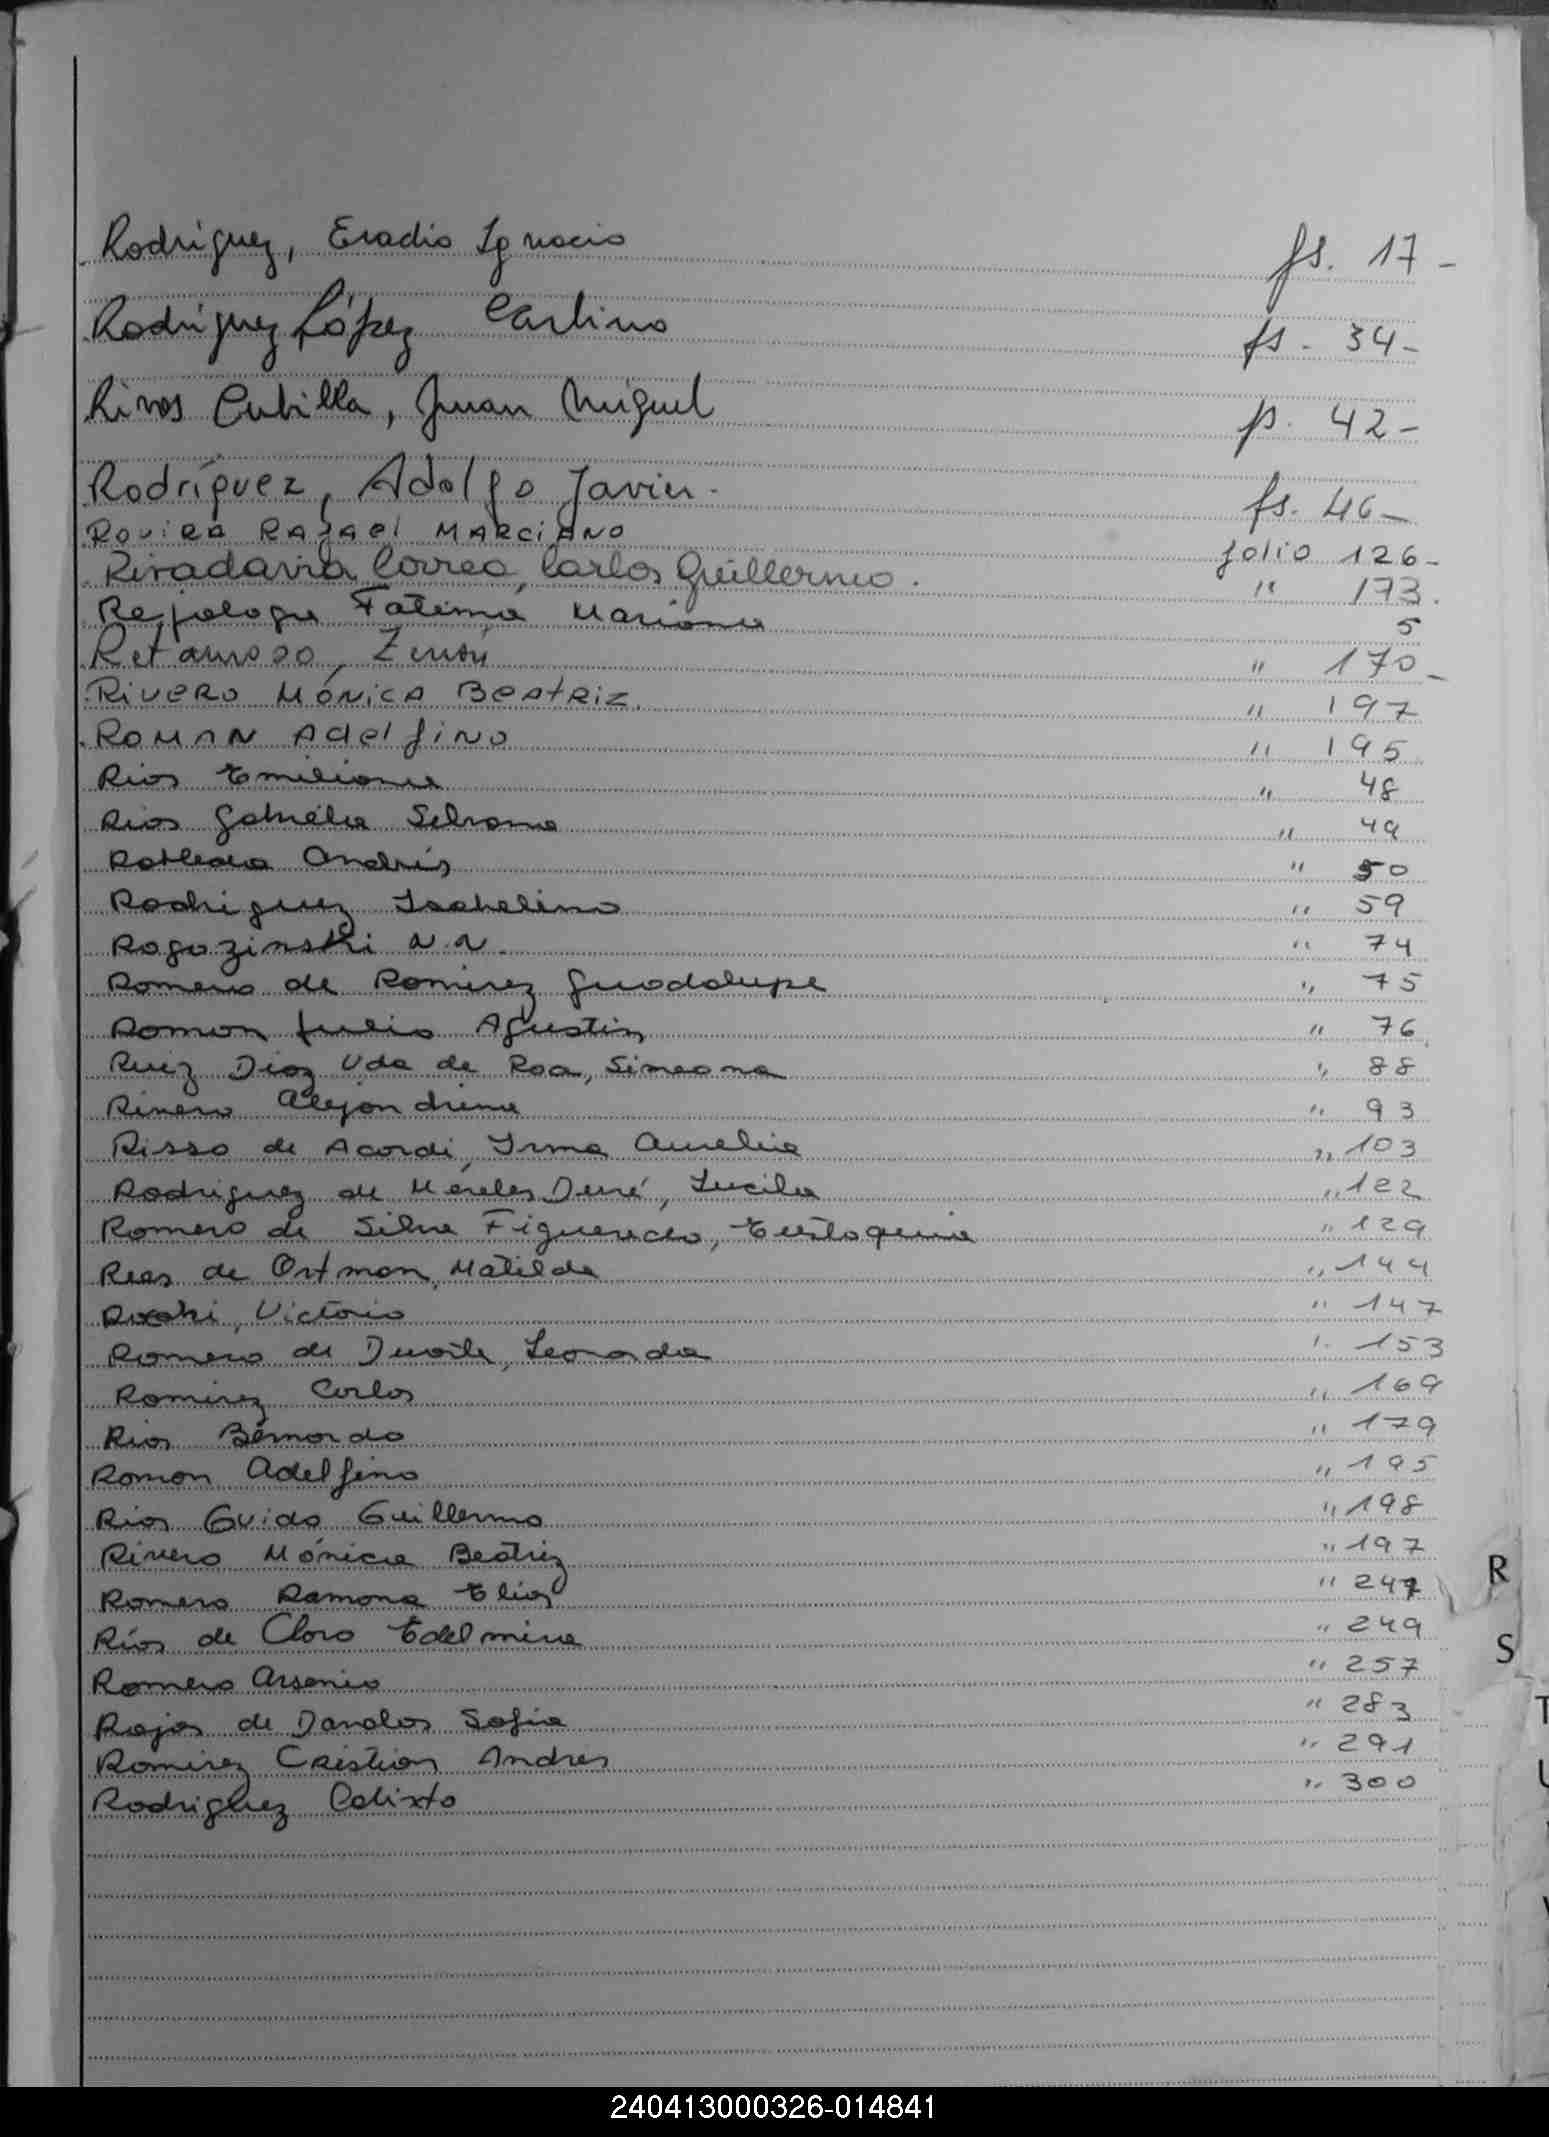 Rodríguez, Eradio Ignacio fs. 17-
Rodríguez López Carlino fs. 34-
Rivas Cubilla, Juan Miguel fs. 42-
Rodríguez, Adolfo Javier. fs. 46-
Rovira Rafael Marciano folio 126-
Rivadavia Correa, Carlos Guillermo. " 173.
Fatima Mariana 5
Retamoso, Zenón " 170-
Rivero Mónica Beatriz. " 197
Roman Adelfino " 195
Rios Emiliana " 48
Rios Gabriela Silvana " 49
Robledo Andrés " 50
Rodriguez Isabelino " 59
Rogozinski N.N. " 74
Romero de Ramirez Guadalupe " 75
Roman Julio Agustin " 76
Ruiz Diaz Vda de Roa, Simeona " 88
Rivero Alejandrina " 93
Risso de Acordi, Irma Aurelia " 103
Rodriguez de Mereles Dené, Lucila " 122
Romero de Silva Figueredo, Eustoquia " 129
Rios de Ortman, Matilde " 144
Victorio " 147
Romero de Duarte, Leonarda " 153
Ramirez Carlos " 169
Rios Bernardo " 179
Roman Adelfino " 195
Rios Guido Guillermo " 198
Rivero Mónica Beatriz " 197
Romero Ramona Elias " 247
Ríos de Claro Edelmira " 249
Romero Arsenio " 257
Rojas de Davalos Sofia " 283
Ramirez Cristian Andres " 291
Rodriguez Calixto " 300
R
S
T
U
240413000326-014841